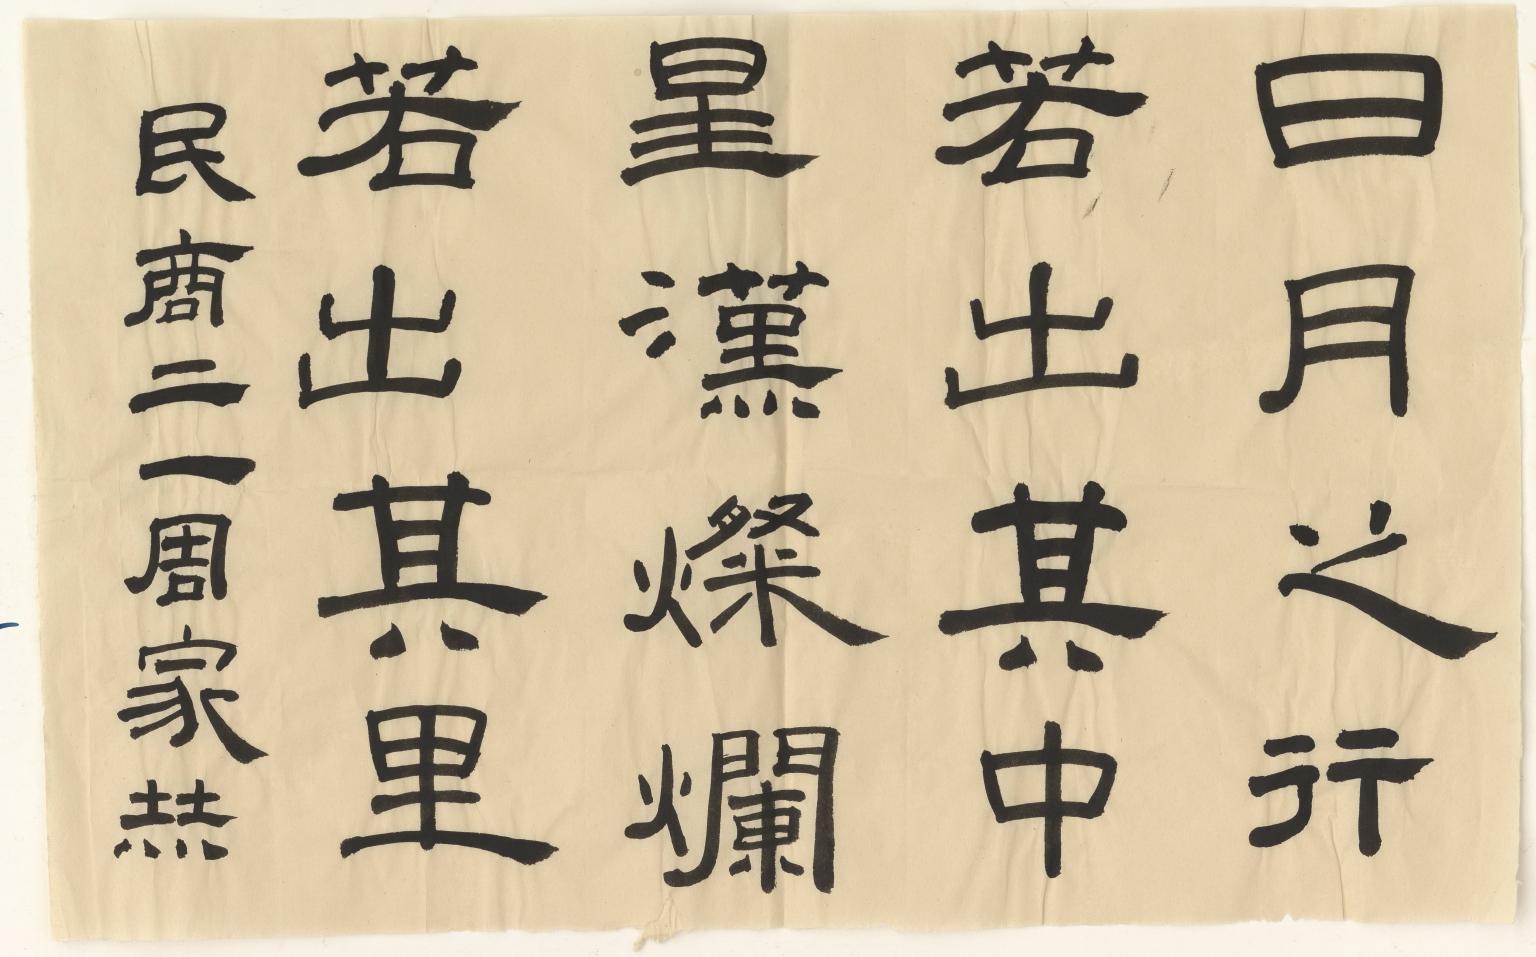 日月之行
若出其中
星漢燦爛
若出其里
民商二一周家喆